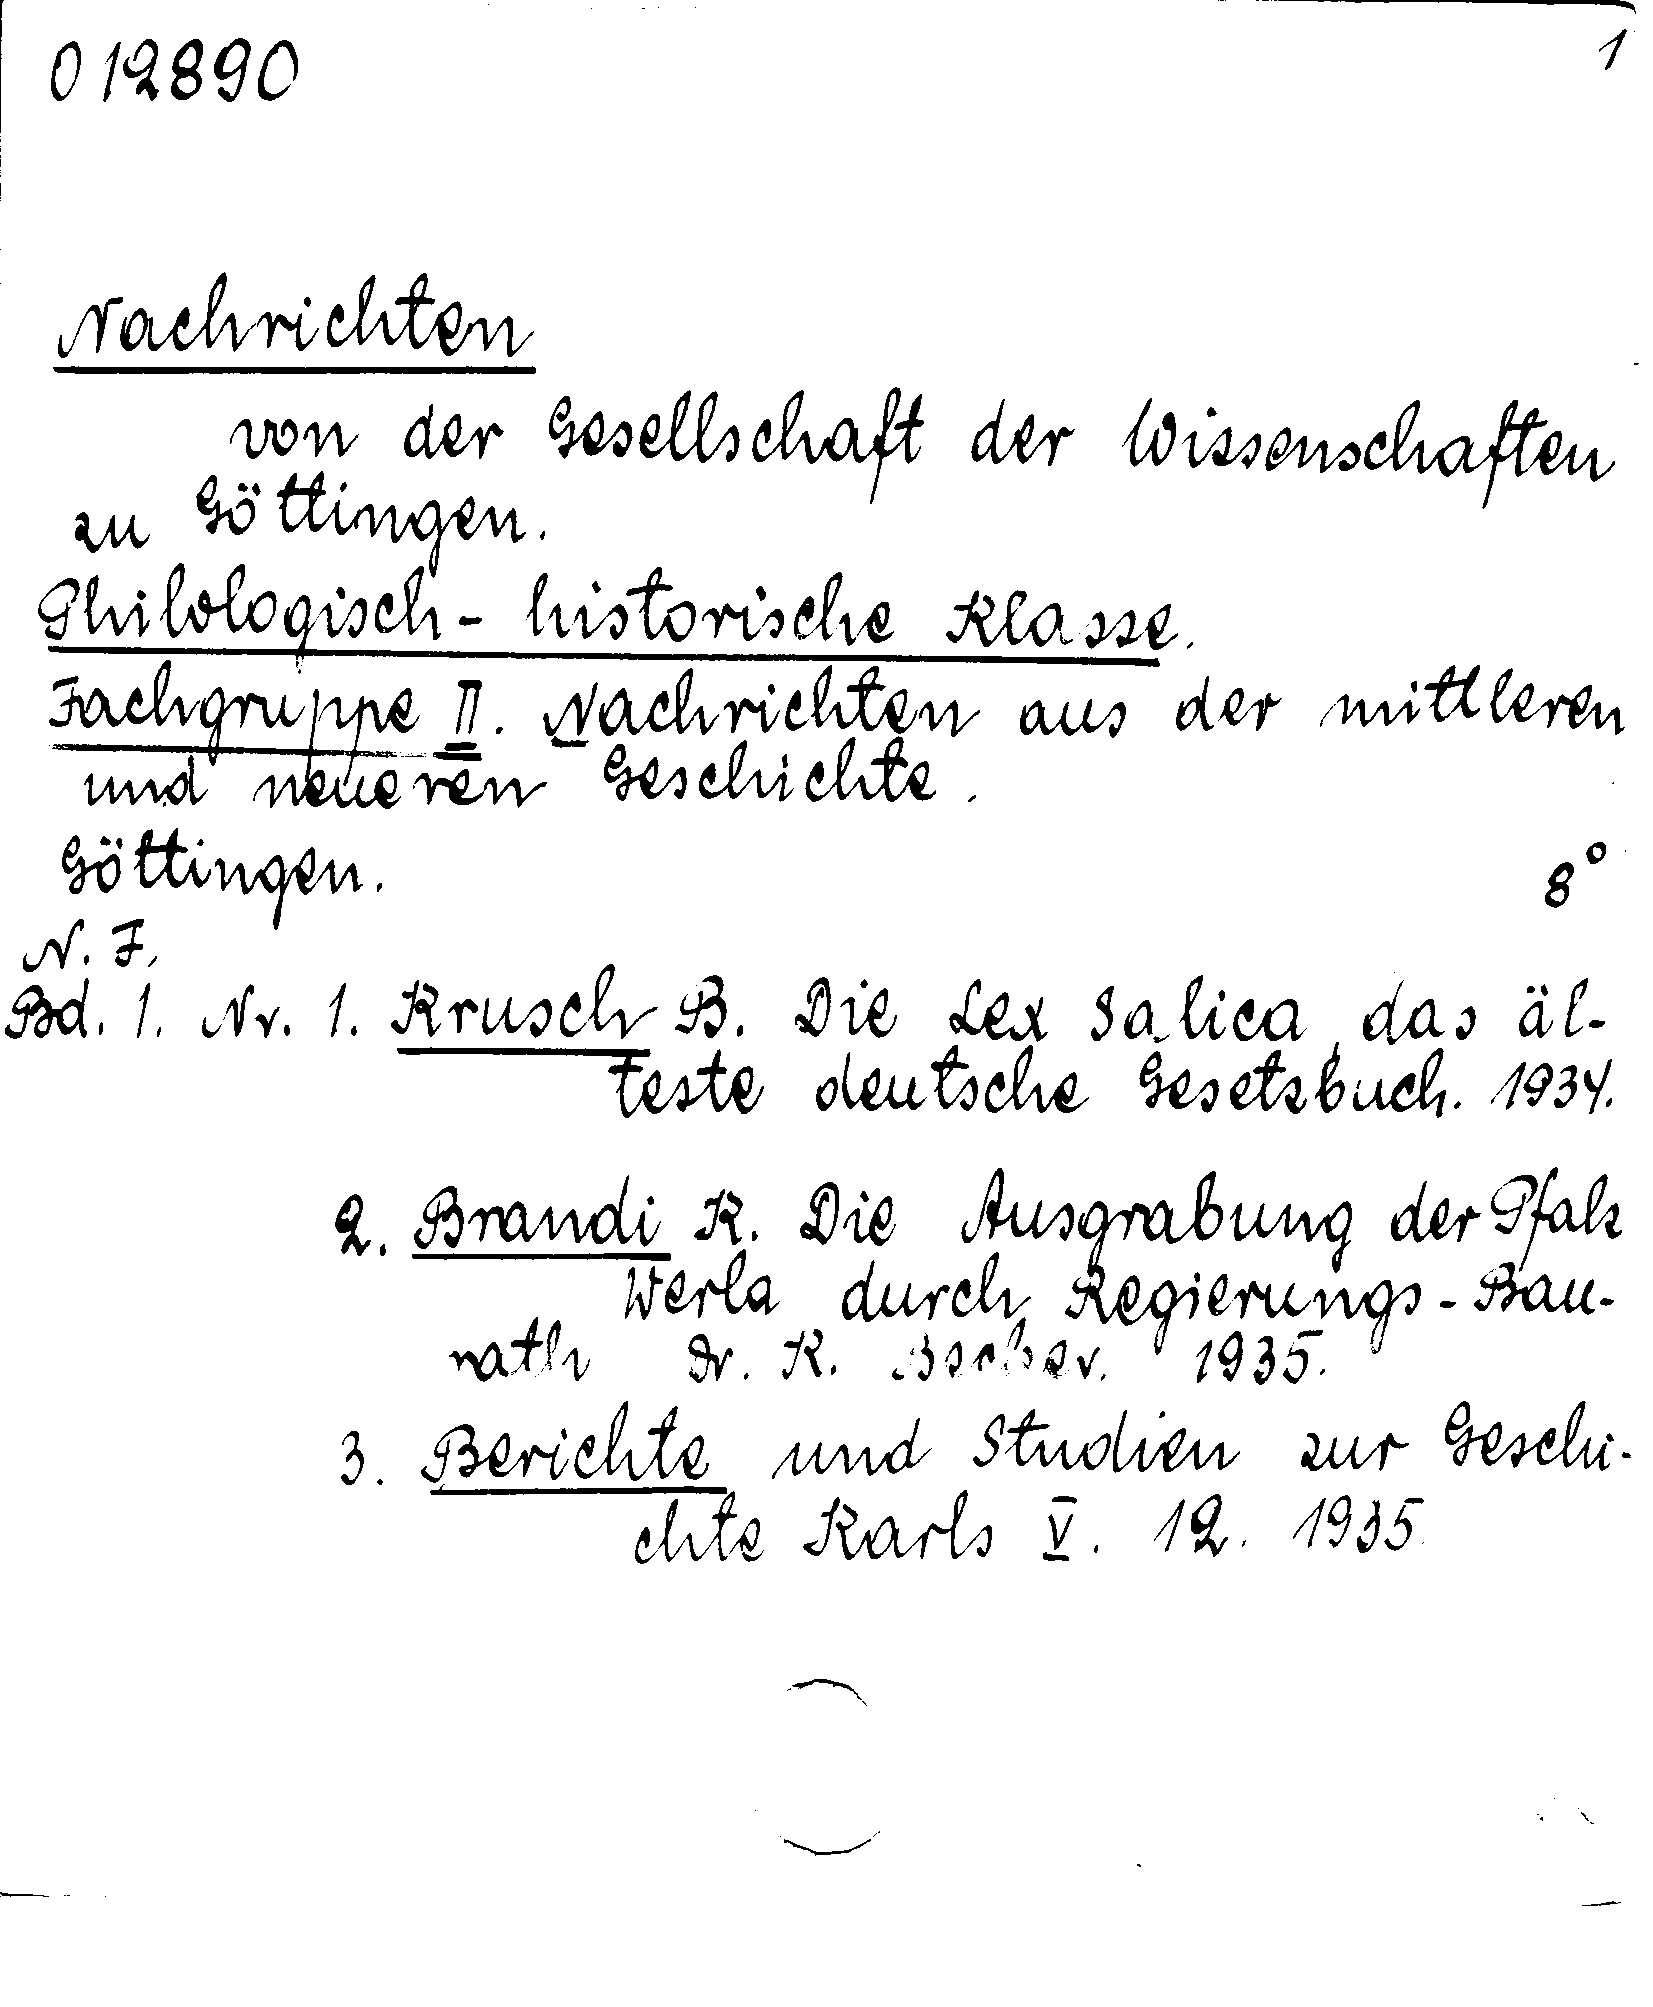 012890 1
Nachrichten
von der Gesellschaft der Wissenschaften
zu Göttingen.
Philologisch-historische Klasse.
Fachgruppe II. Nachrichten aus der mittleren
und neueren Geschichte.
Göttingen. 8°
N. F.
Bd. 1. Nr. 1. Krusch B. Die Lex Salica, das äl-
teste deutsche Gesetzbuch. 1934.
2. Brandi K. Die Ausgrabung der Pfalz
Werla durch Regierungs-Bau-
rath Dr. K. Becker. 1935.
3. Berichte und Studien zur Geschi-
chte Karls V. 12. 1935